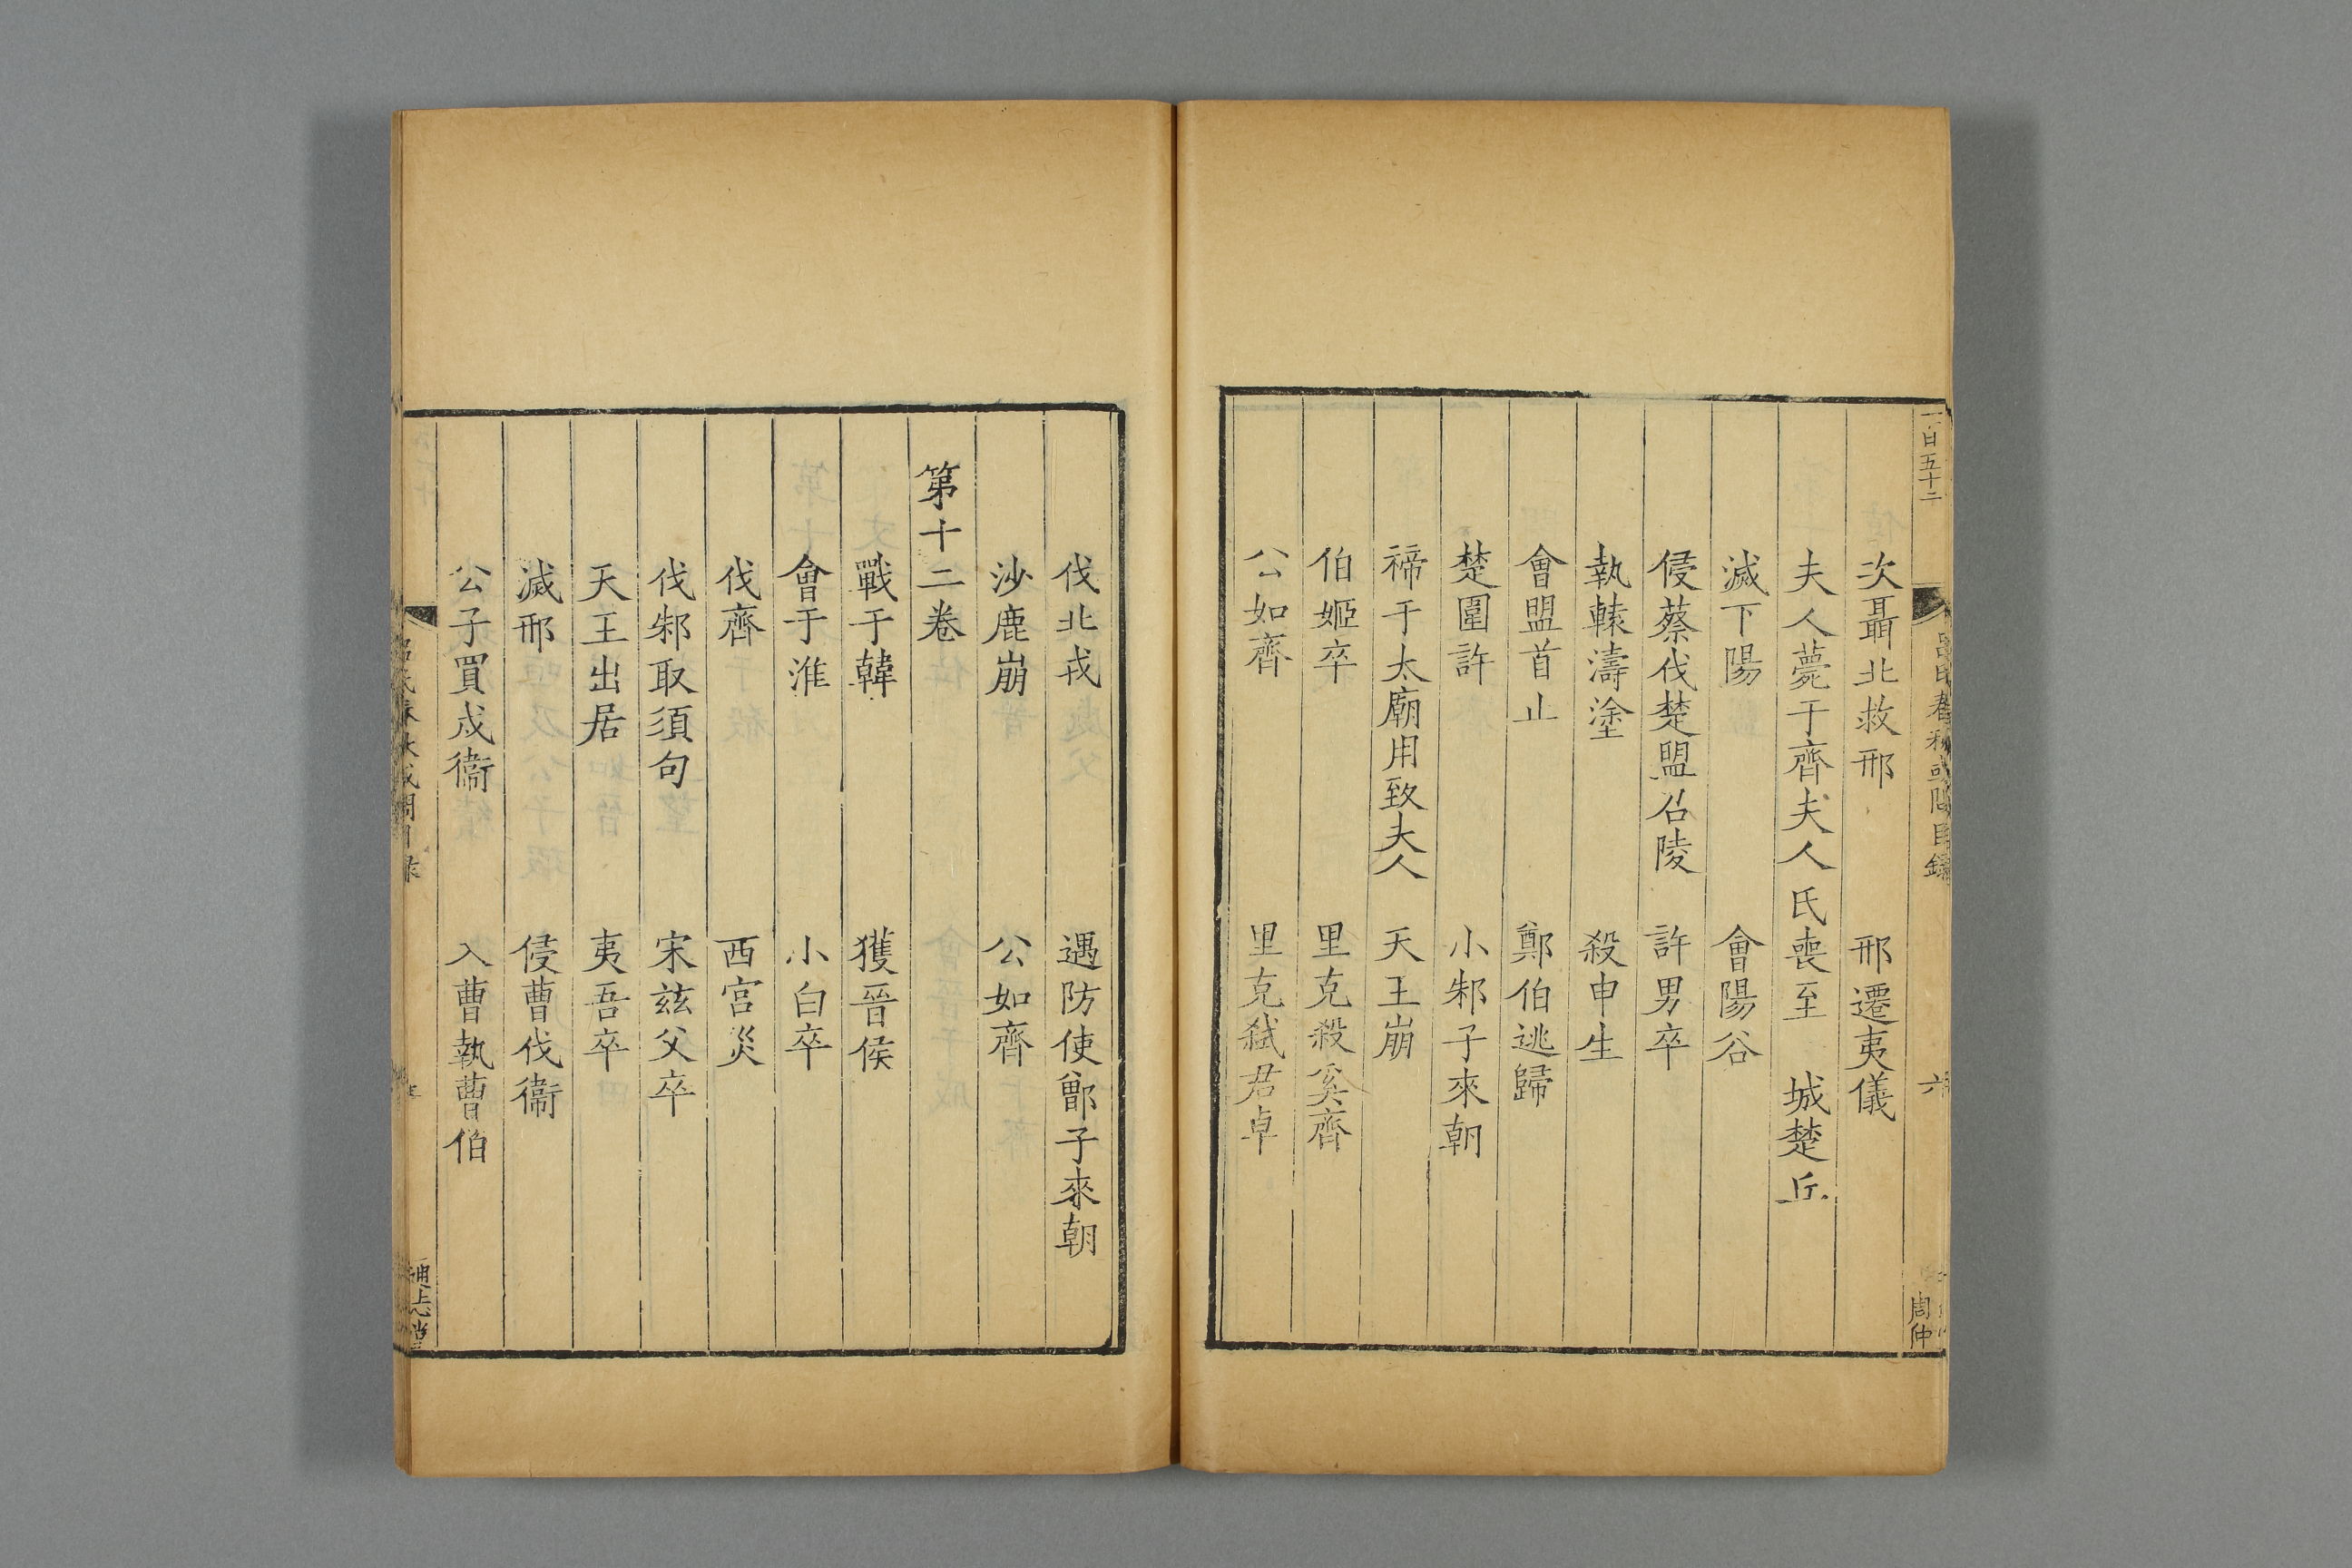 一百五十二
呂氏春秋或問目錄
六
周仲
次聶北救邢　邢遷夷儀
夫人薨于齊夫人氏喪至　城楚丘
滅下陽　會陽谷
侵蔡伐楚盟召陵　許男卒
執轅濤塗　殺申生
會盟首止　鄭伯逃歸
楚圍許　小邾子來朝
禘于太廟用致夫人　天王崩
伯姬卒　里克殺奚齊
公如齊　里克弑君卓
伐北戎　遇防使鄫子來朝
沙鹿崩　公如齊
第十二卷
戰于韓　獲晉侯
會于淮　小白卒
伐齊　西宮災
伐邾取須句　宋兹父卒
天王出居　夷吾卒
滅邢　侵曹伐衞
公子買戍衞　入曹執曹伯
呂氏春秋或問目錄
通志堂